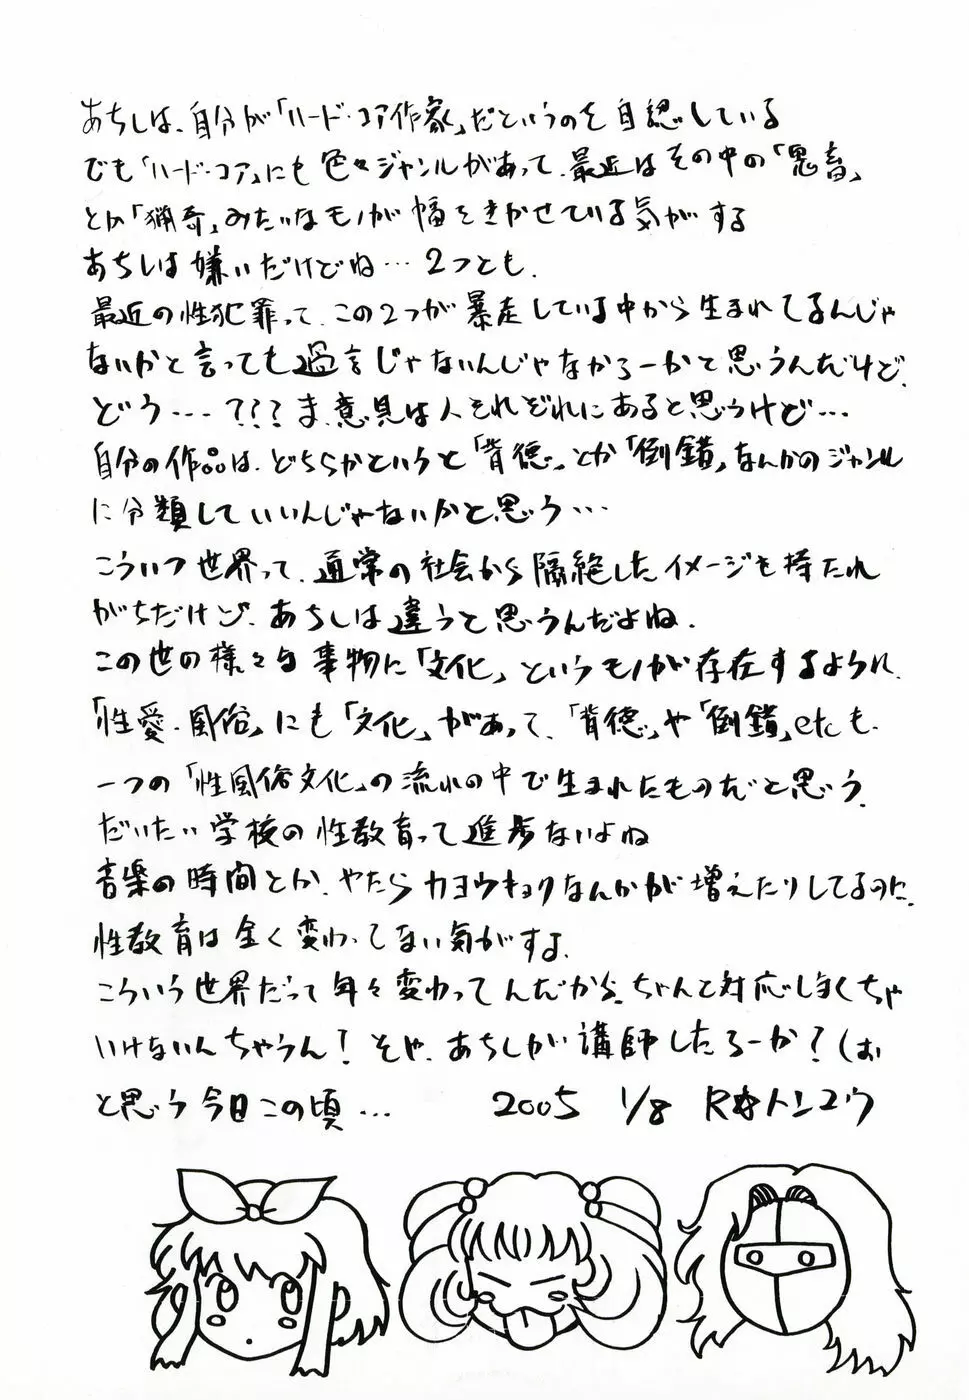 あちしは、自分が「ハード・コア作家」だというのを自認している
でも「ハード・コア」にも色々ジャンルがあって、最近はその中の「鬼畜」
とか「猟奇」みたいなモノが幅をきかせている気がする
あちしは嫌いだけどね…2つとも、
最近の性犯罪って、この2つが暴走している中から生まれてるんじゃ
ないかと言っても過言じゃないんじゃなかろーかと思うんだけど、
どう…???ま、意見は人それぞれにあると思うけど…
自分の作品は、どちらかというと「背徳」とか「倒錯」なんかのジャンル
に分類していいんじゃないかと思う…
こういつ世界って、通常の社会から隔絶したイメージを持たれ
がちだけど、あちしは違うと思うんだよね、
この世の様々な事物に「文化」というモノが存在するように、
「性愛・風俗」にも「文化」があって、「背徳」や「倒錯」etcも、
一つの「性風俗文化」の流れの中で生まれたものだと思う、
だいたい学校の性教育って進歩ないよね
音楽の時間とか、やたらカヨウキョクなんかが増えたりしてるのに、
性教育は全く変わってない気がする、
こういう世界だって年々変わってんだから、ちゃんと対応しなくちゃ
いけないんちゃうん!そや、あちしが講師したろーか?(お
と思う今日この頃… 2005 1/8 R